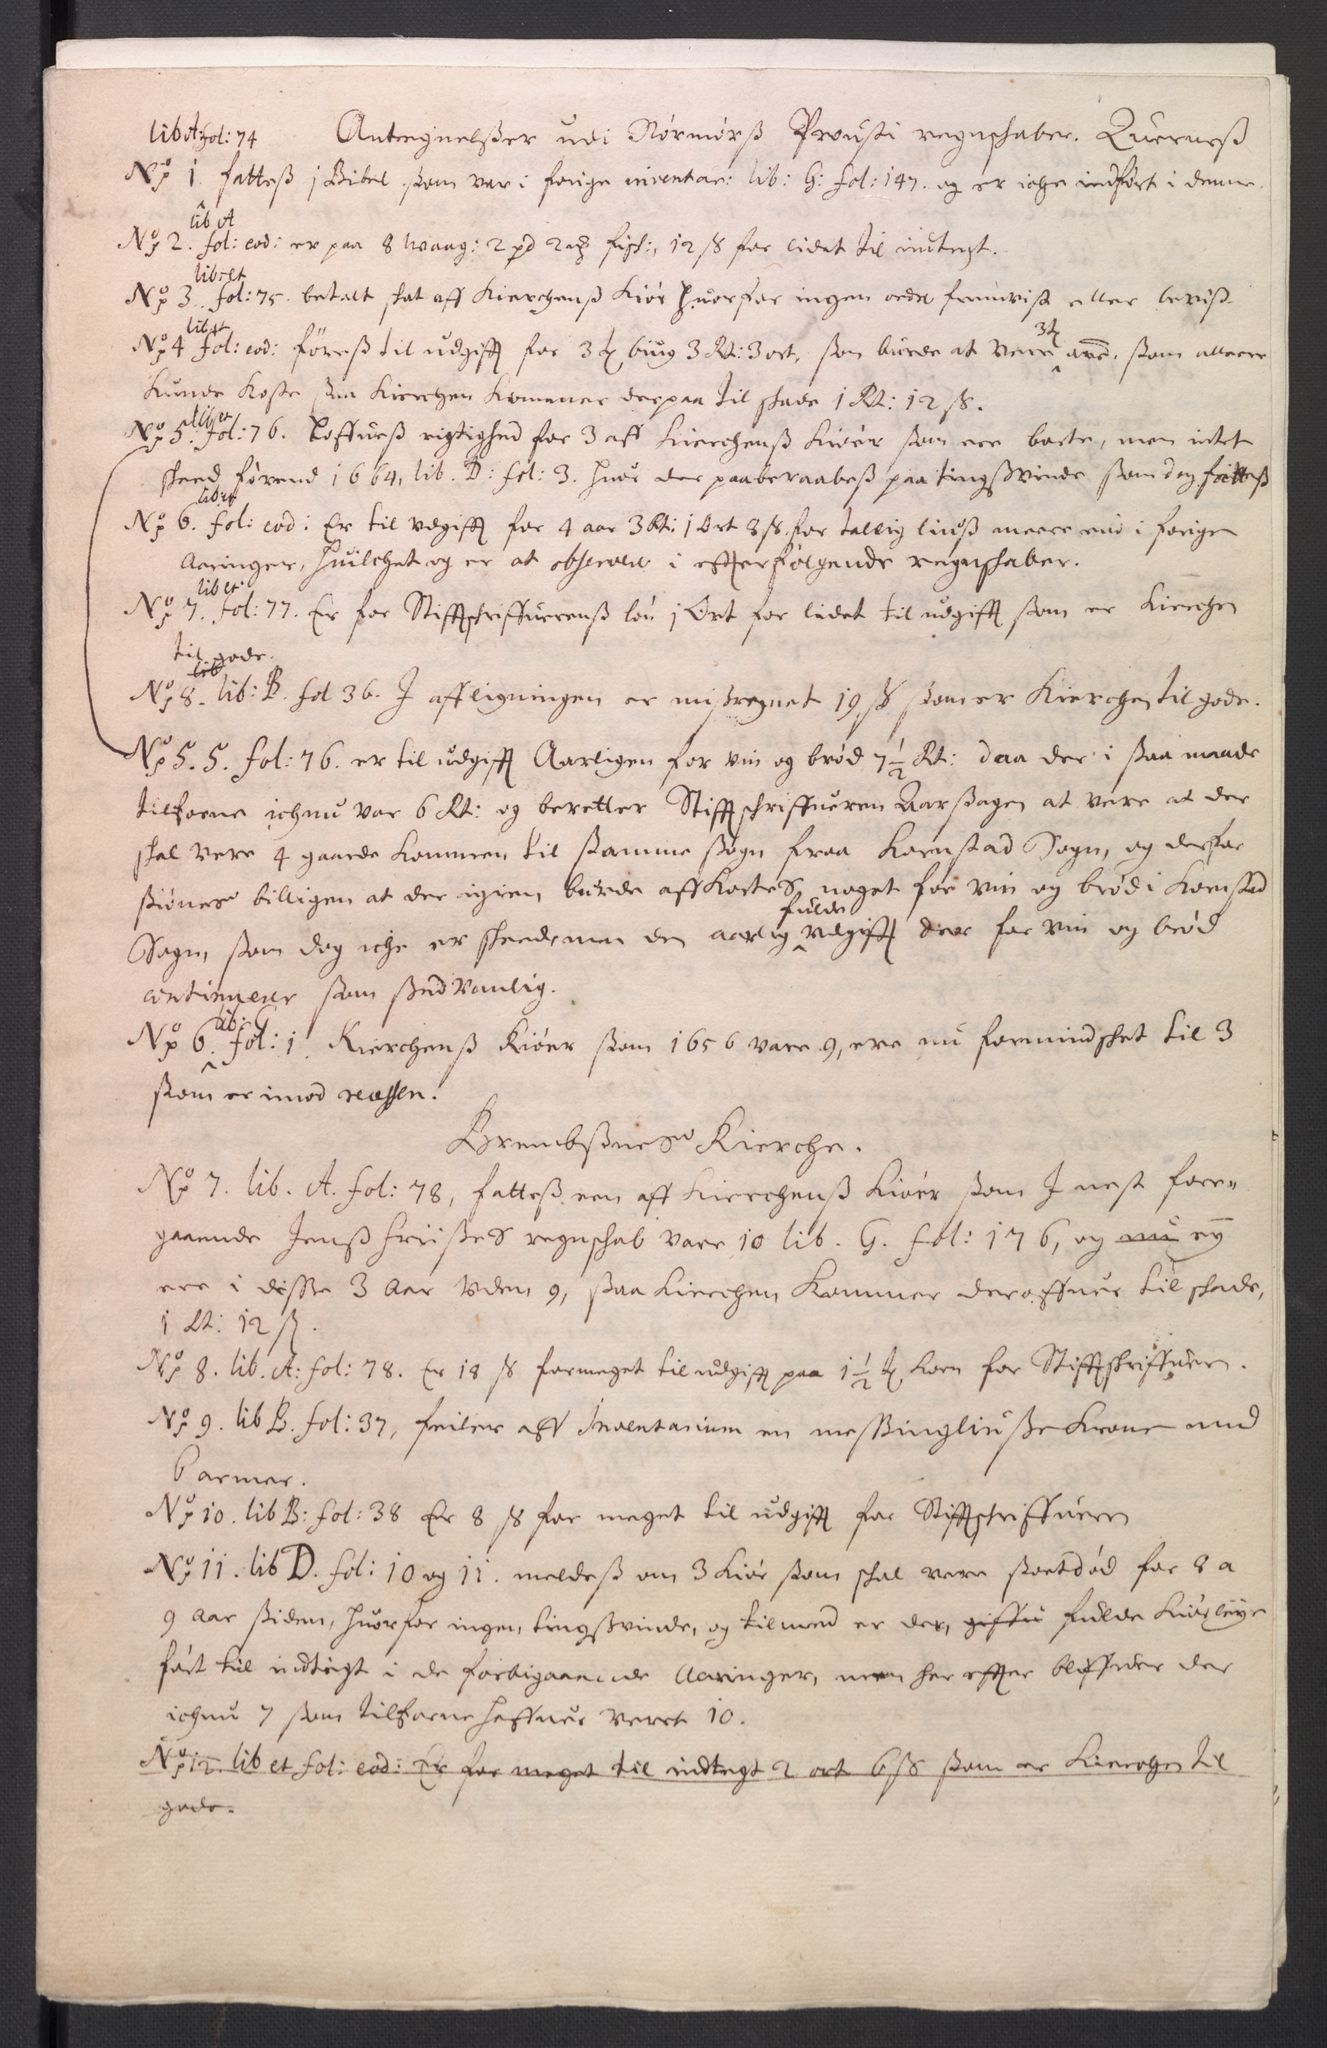 lib A: fol: 74 Antegnelsser udi Nørmørs Prousti regnschaber. Quernes
No 1. fattes j Bibel som var i forige inventar: lib: G: fol: 147. og er iche indført i denne.
No 2. lib A fol: eod: er paa 8 Waag: 2 pd fisch: 12 s for lidet til indtegt.
No 3. lib: A fol: 75. betalt schat aff Kierchens Kiør huorfor ingen ordre fremvist eller bevist
No 4 lib A fol: eod: føres til udgifft for 3 t biug 3 Rt: 3 ort, som burde at være 3 t, som alleene
Kunde Koste saa Kierchen Kommer derpaa til schade 1 Rt: 12 s.
No 5. lib A fol: 76. loffues rigtighed for 3 aff Kierchens Kiøer som ere borte, men intet
scheed førend 1664, lib. D: fol: 3. huor der paaberaabes paa tingsvinde som dog fattes
No 6. lib A fol: eod: Er til udgifft for 4 aar 3 Rt: 1 Ort 8 s. for tallig liuus meere end i forige
Aaringer, huilchet og er at observere i effterfølgende regnschaber.
No 7. lib A fol: 77. Er for Stifftschriffuerens løn j Ort for lidet til udgifft som er Kierchen
til gode.
No 8. lib: B. fol 36. J affligningen er misregnet 19 s som er Kierchen til gode.
No 5. 5. fol: 76. er til udgifft Aarligen for vin og brød 7 1/2 Rt: daa der i saa maade
tilforne ichun var 6 Rt: og beretter Stifftschriffueren Aarsagen at vere at der
schal vere 4 gaarde kommen til samme sogn fraa Kornstad Sogn, og derfor
siønes billigen at der igien burde affkortes noget for vin og brød i Kornstad
Sogn, som dog iche er scheed men den aarlig fulde udgifft der for vin og brød
continuerer som sedvanlig.
No 6. lib: C fol: 1. Kierchens Kiøer som 1656 vare 9, ere nu formindschet til 3
som er imod recessen.
Brembsnes Kierche.
No 7. lib. A. fol: 78, fattes een aff Kierchens Kiøer som J nest fore-
gaaende Jens Friises regnschab vare 10 lib. G. fol: 176, og nu ey
ere i disse 3 Aar uden 9, saa Kierchen Kommer deroffuer til schade,
1 Rt: 12 s.
No 8. lib. A: fol: 78. Er 18 s formeget til udgifft paa 1 1/2 t Korn for Stifftschriffueren.
No 9. lib B. fol: 37, feiler aff Inventarium en messingliusse Krone med
6 armer.
No 10. lib B: fol: 38 Er 8 s for meget til udgifft for Stifftschriffueren
No 11. lib D. fol: 10 og 11. meldes om 3 Kiør som schal vere støtdød for 8 a
9 Aar siden, huorfor ingen tingsvinde, og tilmed er der, giffu fulde Kiørleye
ført til indtegt i de forbigaaende Aaringer, men her effter bliffuer der
ichun 7 som tilforne haffuer verret 10.
No 12. lib et fol: eod: Er for meget til indtegt 2 ort 6 s som er Kierchen til
gode.